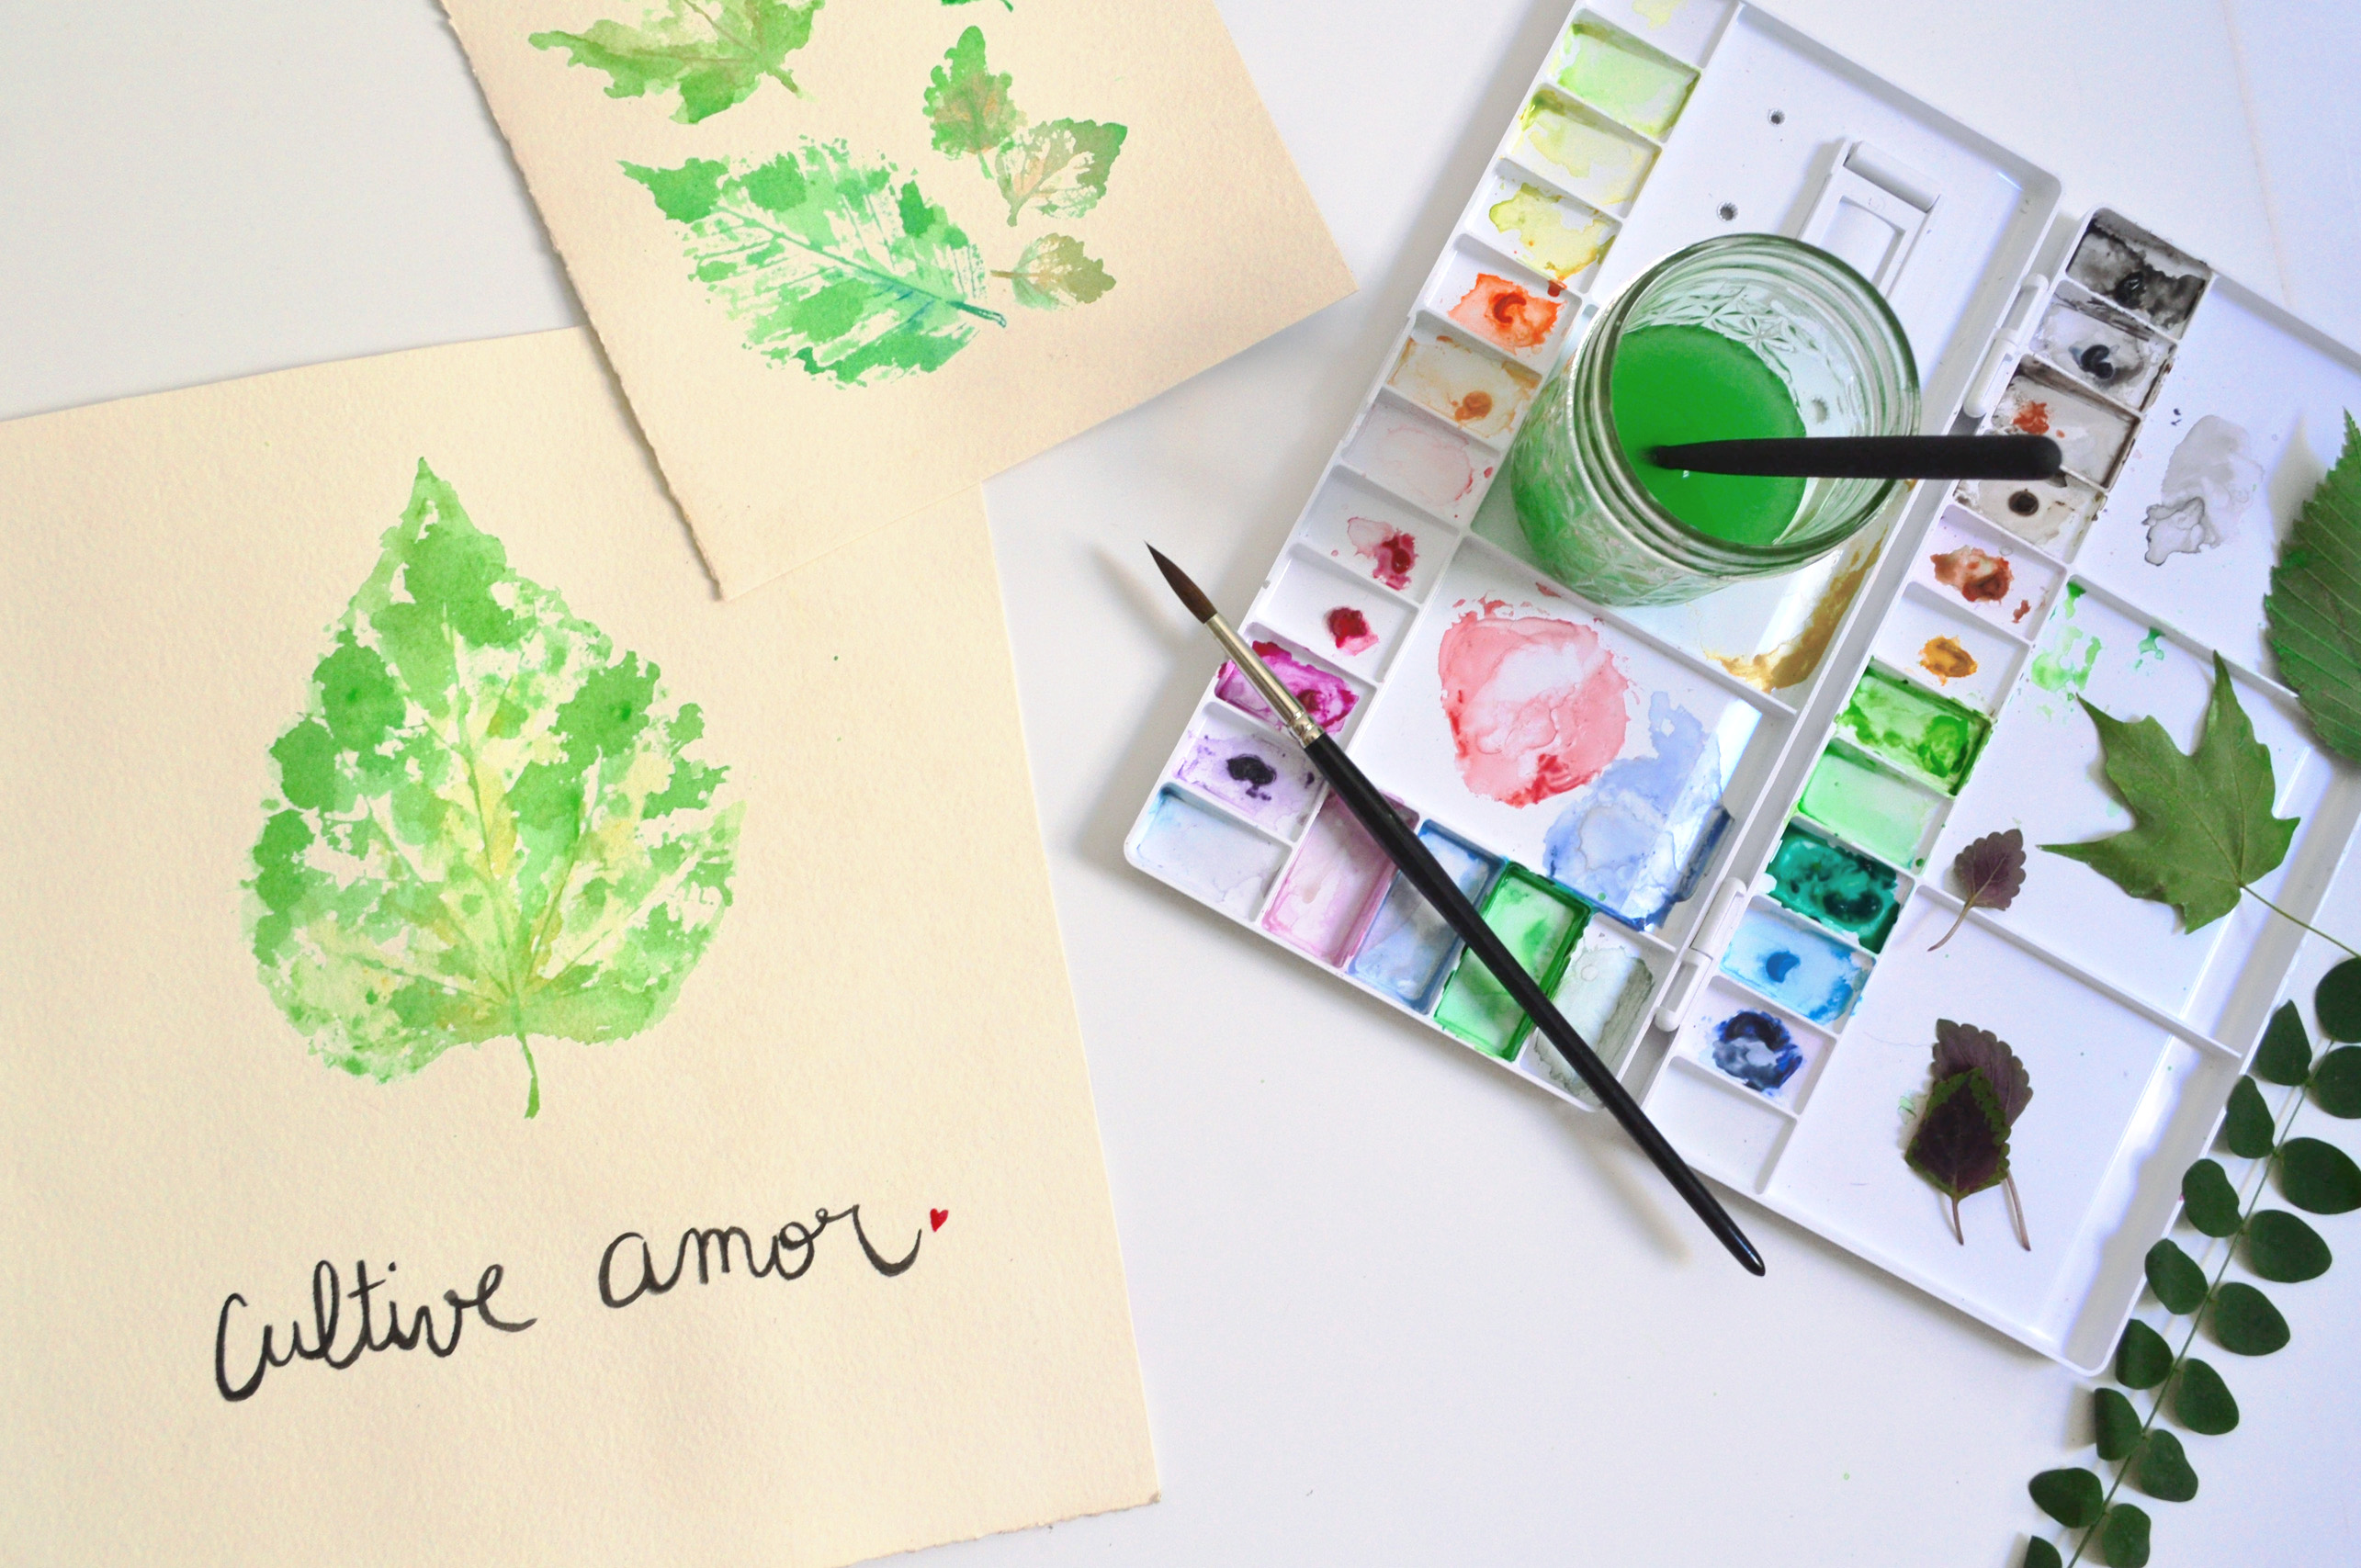 Cultive amor.